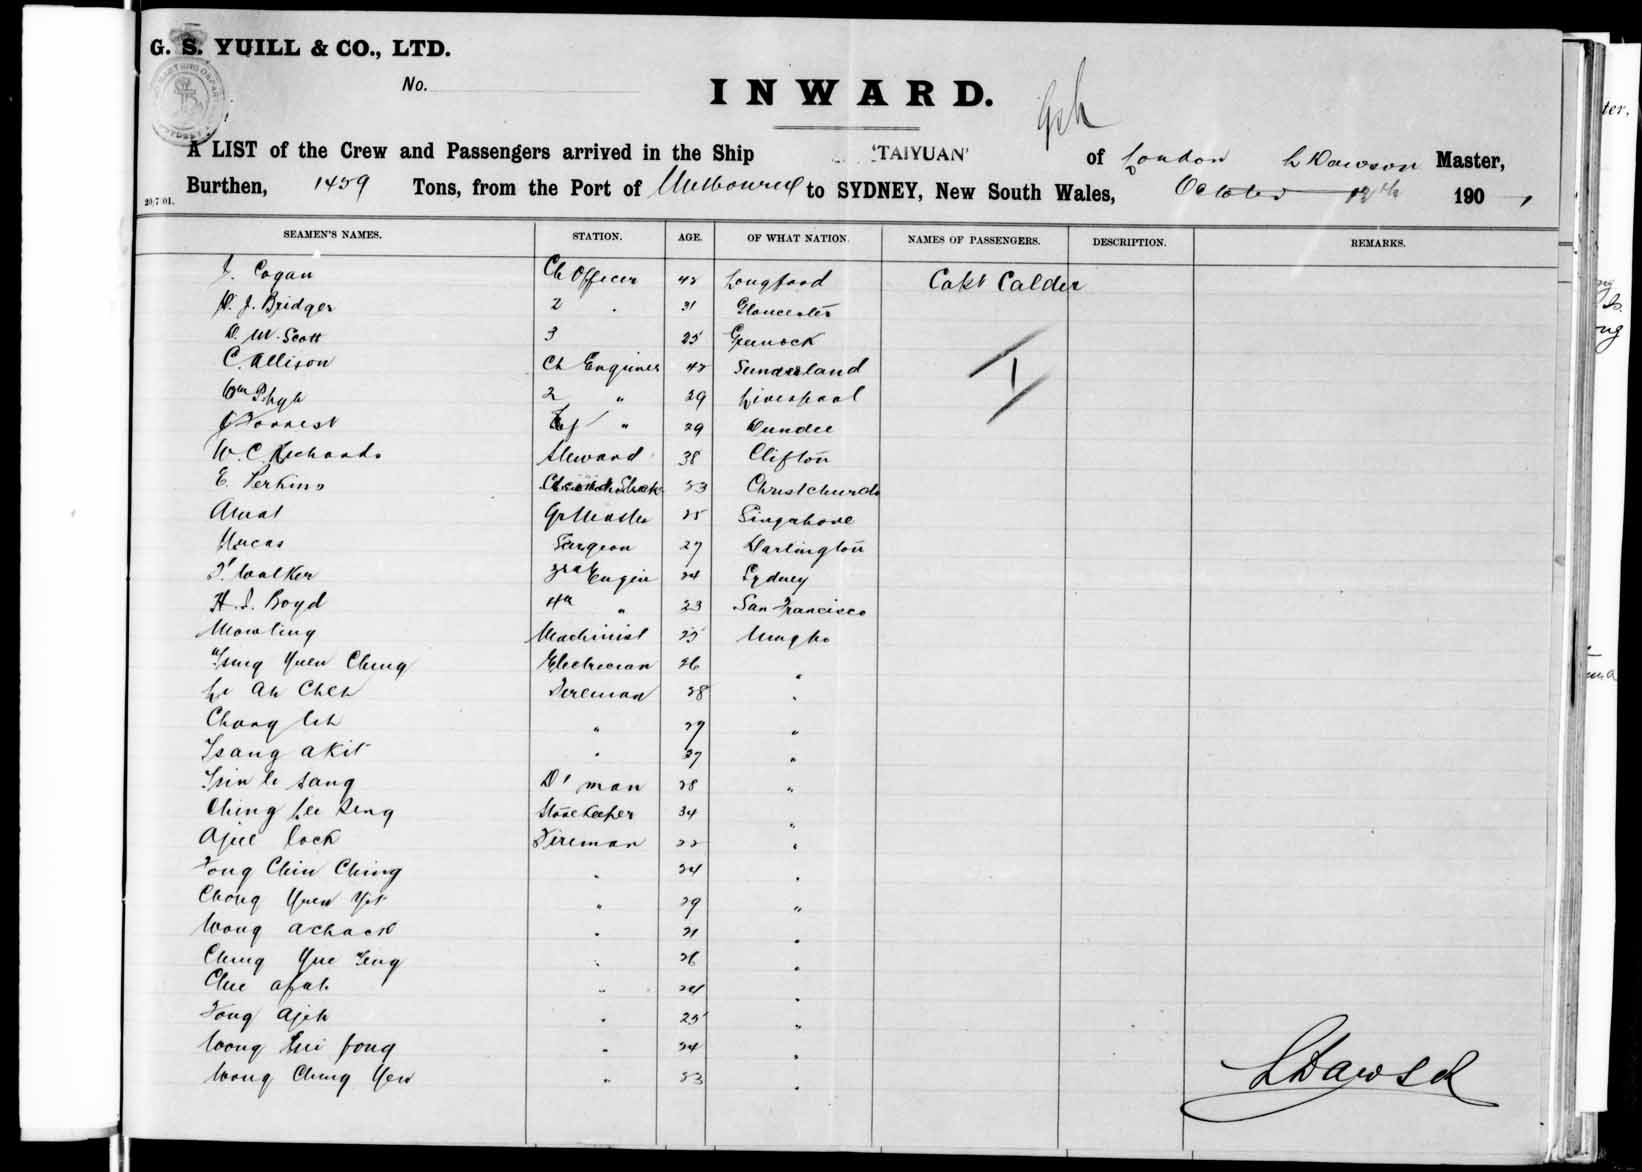 G. S. YUILL & CO., LTD.
No.
INWARD.
A LIST of the Crew and Passengers arrived in the Ship 'TAIYUAN' of London L Dawson Master,
Burthen, 1459 Tons, from the Port of Melbourne to SYDNEY, New South Wales, October 190
20/7/01.
SEAMEN'S NAMES. STATION. AGE. OF WHAT NATION. NAMES OF PASSENGERS. DESCRIPTION. REMARKS.
J. Cogan Ch Officer 42 Longford Capt Calder
J. Bridger 2 " 31 Gloucester
D. W. Scott 3 25 Greenock
C. Allison Ch Engineer 42 Sunderland 1
Wm 2 " 29 Liverpool
Forrest " 29 Dundee
W. C. Richards Steward 38 Clifton
E. Perkins 33 Christchurch
25 Singapore
Surgeon 27 Darlington
T. Walker 3rd Engin 24 Sydney
H. J. Boyd 4th " 23 San Francisco
Mowling Machinist 25 Ningpo
Tsung Yuen Ching Electrician 26 "
Li Ah Cheh Fireman 28 "
Chang " 27 "
Tsang akit " 27 "
sang D' man 28 "
Ching Lee Storekeeper 34 "
Fireman 22 "
Fong Chin Ching " 24 "
Chong Yuen " 29 "
Wong " 21 "
Ching Yue " 26 "
Chee " 24 "
Fong Ajeh " 25 "
Wong fong " 24 "
Wong Ching Yew " 33 "
L Dawson